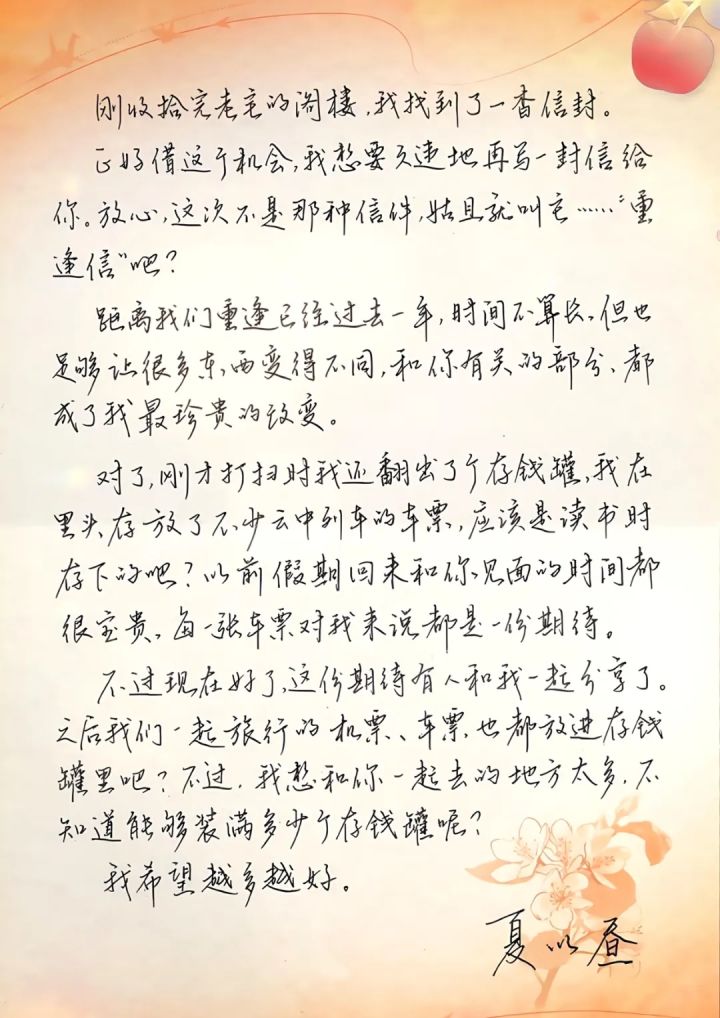 刚收拾完老宅的阁楼，我找到了一沓信封。
正好借这个机会，我想要久违地再写一封信给
你。放心，这次不是那种信件，姑且就叫它……“重
逢信”吧？
距离我们重逢已经过去一年，时间不算长。但也
足够让很多东西变得不同，和你有关的部分、都
成了我最珍贵的改变。
对了，刚才打扫时我还翻出了个存钱罐，我在
里头存放了不少云中列车的车票，应该是读书时
存下的吧？以前假期回来和你见面的时间都
很宝贵，每一张车票对我来说都是一份期待。
不过现在好了，这份期待有人和我一起分享了。
之后我们一起旅行的机票、车票，也都放进存钱
罐里吧？不过，我想和你一起去的地方太多，不
知道能够装满多少个存钱罐呢？
我希望越多越好。
夏以昼